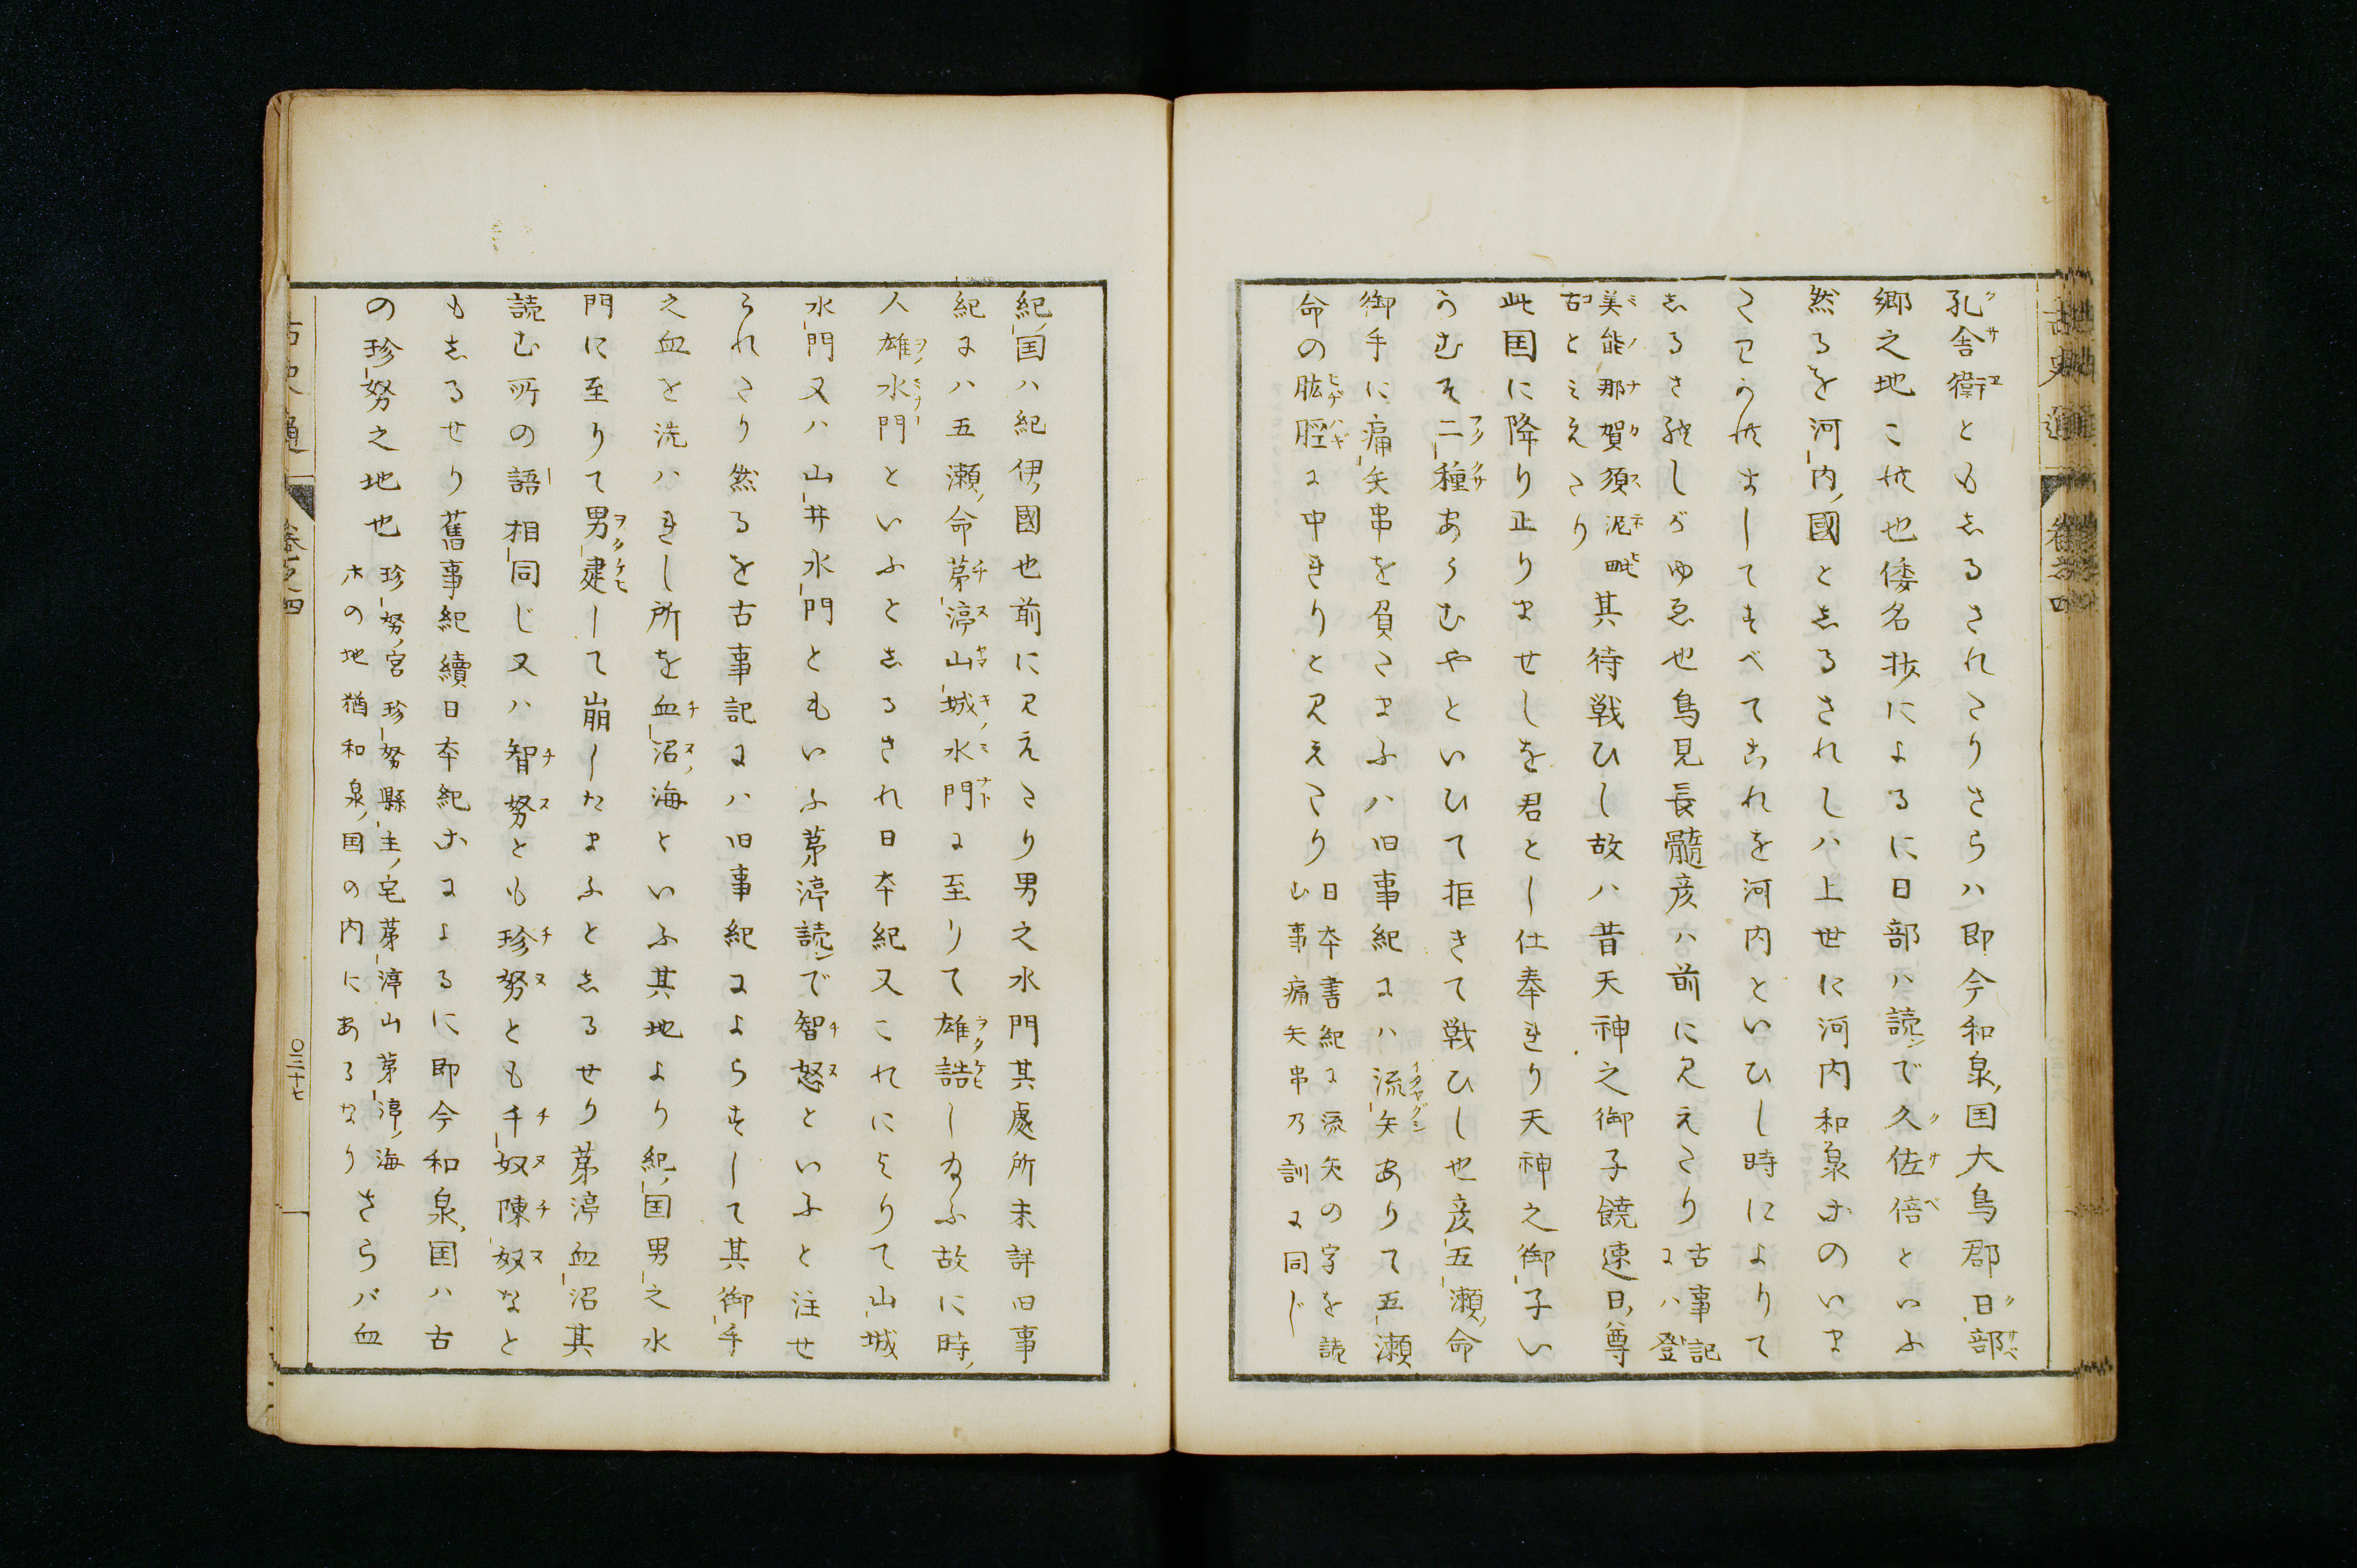 古史通
卷之四
孔舎衛ともゑるされたりさらハ即今和泉国大鳥郡日部
郷之地これ也倭名抄によるに日部ハ読ンで久佐倍といふ
然るを河内國とゑるされしハ上世に河内和泉等のいま
たわかれすしてすべてこれを河内といひし時によりて
ゑるされしがゆゑ也鳥見長髓彦ハ前に見えたり古事記にハ登
美能那賀須泥毗古とみえたり其待戦ひし故ハ昔天神之御子饒速日尊
此国に降り止りませしを君とし仕奉れり天神之御子い
かむそ二種あらむやといひて拒きて戦ひし也彦五瀬命
御手に痛矢串を負たまふハ旧事紀にハ流矢ありて五瀬
命の肱脛に中れりと見えたり日本書紀に流矢の字を読む事痛矢串乃訓に同じ
紀国ハ紀伊國也前に見えたり男之水門其處所未詳旧事
紀にハ五瀬命茅渟山城水門に至りて雄誥し給ふ故に時
人雄水門といふとゑるされ日本紀又これによりて山城
水門又ハ山井水門ともいふ茅渟読ンで智怒といふと注せ
られたり然るを古事記にハ旧事紀によらすして其御手
之血を洗ハれし所を血沼海といふ其地より紀国男之水
門に至りて男建して崩したまふとゑるせり茅渟血沼其
読む所の語相同じ又ハ智努とも珍努とも千奴陳奴なと
もゑるせり舊事紀續日本紀等によるに即今和泉国ハ古
の珍努之地也珍努宮珍努縣主宅茅渟山茅渟海等の地猶和泉国の内にあるなりさらバ血
古史通
卷之四
〇三十七